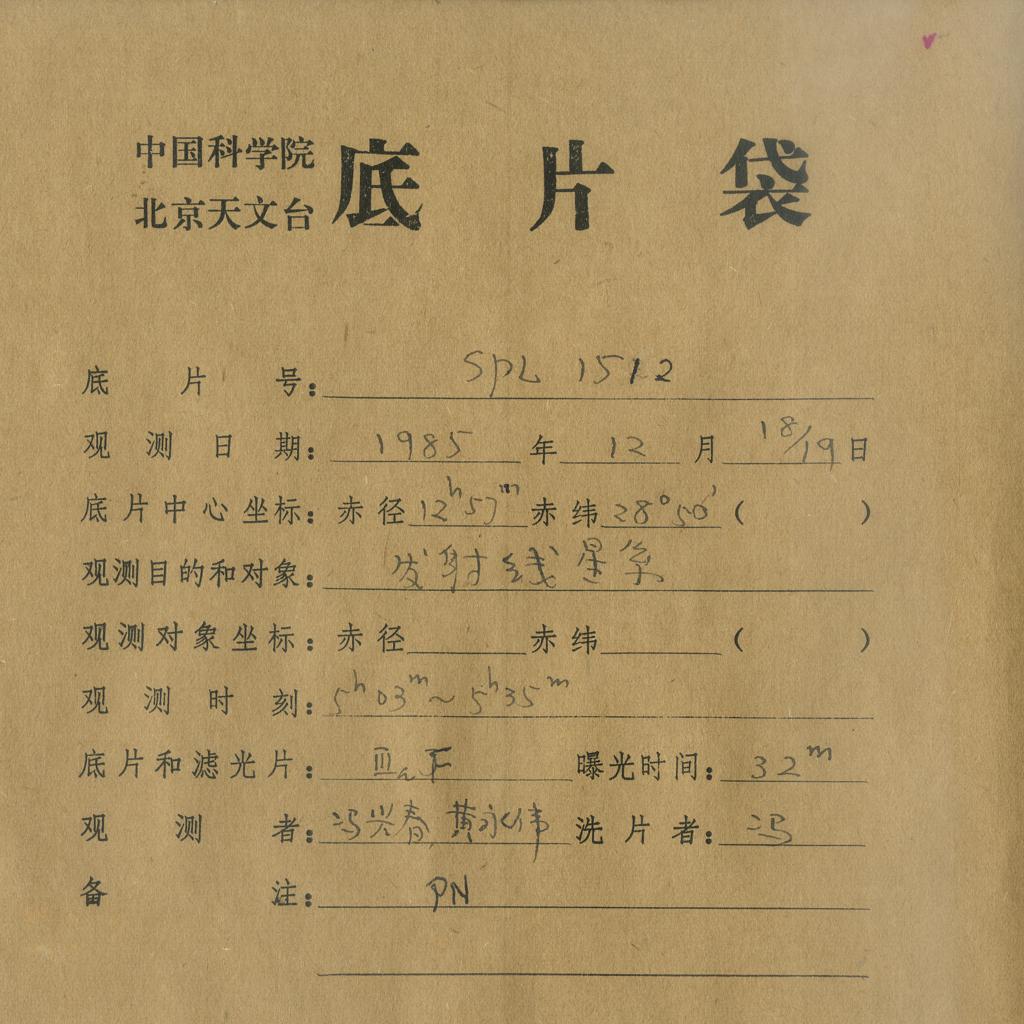 中国科学院
北京天文台
底片袋
底片号：SPL 1512
观测日期：1985年12月18/19日
底片中心坐标：赤径12h57m赤纬28°50′（ ）
观测目的和对象：发射线星系
观测对象坐标：赤径 赤纬 （ ）
观测时刻：5h03m～5h35m
底片和滤光片：ⅢaF 曝光时间：32m
观测者：冯兴春，黄永伟 洗片者：冯
备注：PN